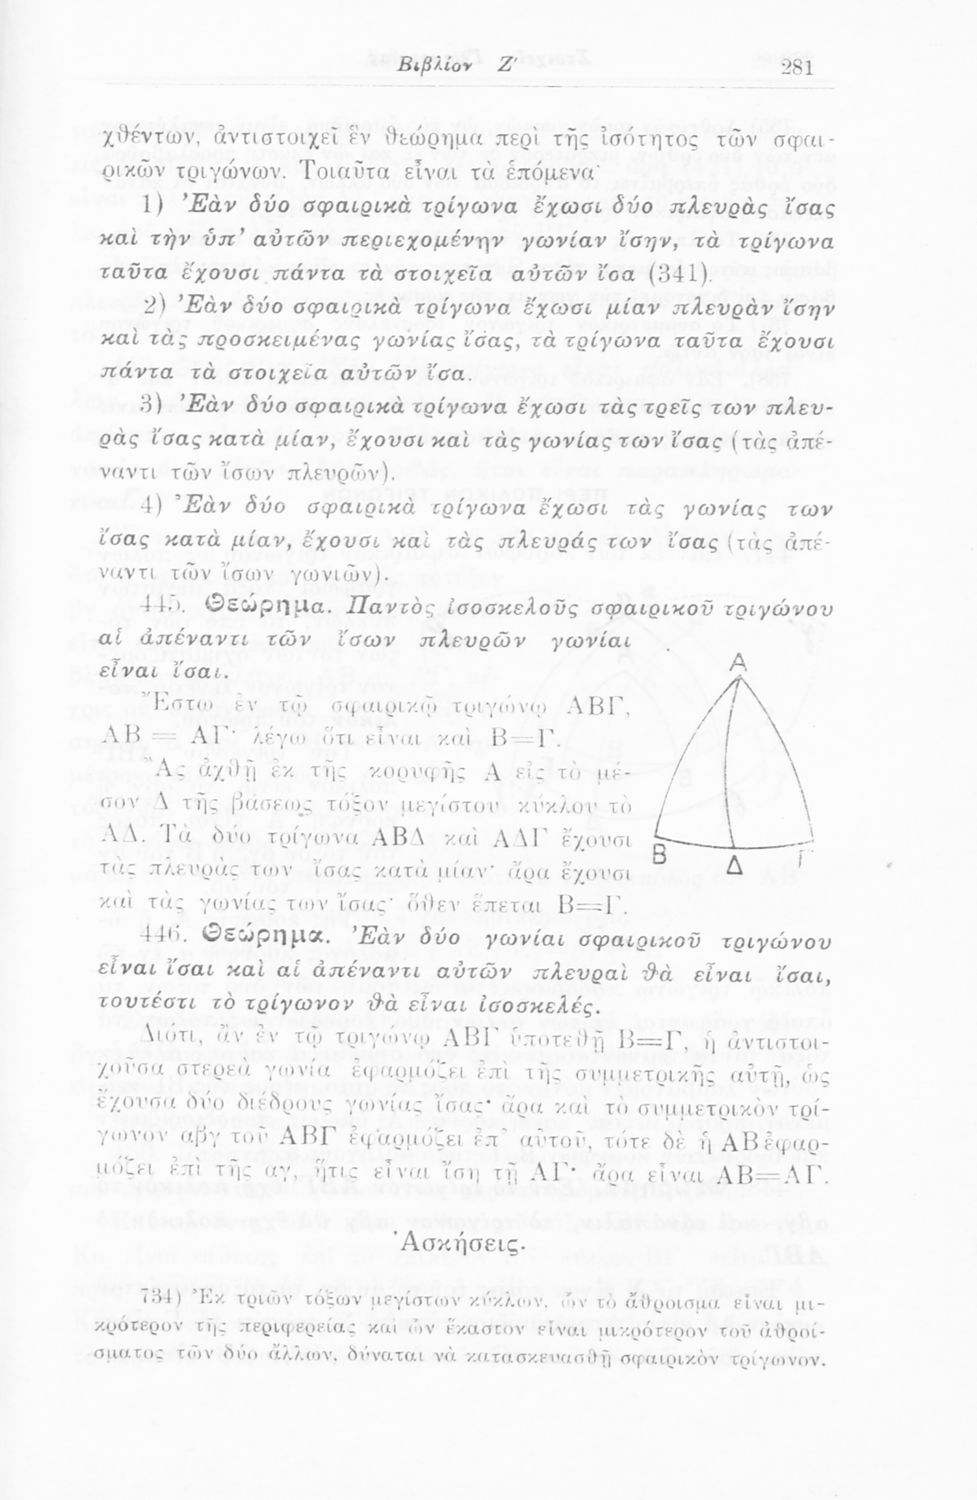 Βιβλίον Ζ′ 281
χθέντων, ἀντιστοιχεῖ ἓν θεώρημα περὶ τῆς ἰσότητος τῶν σφαι-
ρικῶν τριγώνων. Τοιαῦτα εἶναι τὰ ἑπόμενα·
1) Ἐὰν δύο σφαιρικὰ τρίγωνα ἔχωσι δύο πλευρὰς ἴσας
καὶ τὴν ὑπ’ αὐτῶν περιεχομένην γωνίαν ἴσην, τὰ τρίγωνα
ταῦτα ἔχουσι πάντα τὰ στοιχεῖα αὐτῶν ἴσα (341).
2) Ἐὰν δύο σφαιρικὰ τρίγωνα ἔχωσι μίαν πλευρὰν ἴσην
καὶ τὰς προσκειμένας γωνίας ἴσας, τὰ τρίγωνα ταῦτα ἔχουσι
πάντα τὰ στοιχεῖα αὐτῶν ἴσα.
3) Ἐὰν δύο σφαιρικὰ τρίγωνα ἔχωσι τὰς τρεῖς των πλευ-
ρὰς ἴσας κατὰ μίαν, ἔχουσι καὶ τὰς γωνίας των ἴσας (τὰς ἀπέ-
ναντι τῶν ἴσων πλευρῶν).
4) Ἐὰν δύο σφαιρικὰ τρίγωνα ἔχωσι τὰς γωνίας των
ἴσας κατὰ μίαν, ἔχουσι καὶ τὰς πλευράς των ἴσας (τὰς ἀπέ-
ναντι τῶν ἴσων γωνιῶν).
445. Θεώρημα. Παντὸς ἰσοσκελοῦς σφαιρικοῦ τριγώνου
αἱ ἀπέναντι τῶν ἴσων πλευρῶν γωνίαι
εἶναι ἴσαι.
Ἔστω ἐν τῷ σφαιρικῷ τριγώνῳ ΑΒΓ,
ΑΒ = ΑΓ· λέγω ὅτι εἶναι καὶ Β=Γ.
Ἂς ἀχθῇ ἐκ τῆς κορυφῆς Α εἰς τὸ μέ-
σον Δ τῆς βάσεως τόξον μεγίστου κύκλου τὸ
ΑΔ. Τὰ δύο τρίγωνα ΑΒΔ καὶ ΑΔΓ ἔχουσι
τὰς πλευράς των ἴσας κατὰ μίαν· ἄρα ἔχουσι
καὶ τὰς γωνίας των ἴσας· ὅθεν ἕπεται Β=Γ.
Α
Β
Δ
Γ
446. Θεώρημα. Ἐὰν δύο γωνίαι σφαιρικοῦ τριγώνου
εἶναι ἴσαι καὶ αἱ ἀπέναντι αὐτῶν πλευραὶ θὰ εἶναι ἴσαι,
τουτέστι τὸ τρίγωνον θὰ εἶναι ἰσοσκελές.
Διότι, ἂν ἐν τῷ τριγώνῳ ΑΒΓ ὑποτεθῇ Β=Γ, ἡ ἀντιστοι-
χοῦσα στερεὰ γωνία ἐφαρμόζει ἐπὶ τῆς συμμετρικῆς αὐτῇ, ὡς
ἔχουσα δύο διέδρους γωνίας ἴσας· ἄρα καὶ τὸ συμμετρικὸν τρί-
γωνον αβγ τοῦ ΑΒΓ ἐφαρμόζει ἐπ’ αὐτοῦ, τότε δὲ ἡ ΑΒ ἐφαρ-
μόζει ἐπὶ τῆς αγ, ἥτις εἶναι ἴση τῇ ΑΓ· ἄρα εἶναι ΑΒ=ΑΓ.
Ἀσκήσεις.
734) Ἐκ τριῶν τόξων μεγίστων κύκλων, ὧν τὸ ἄθροισμα εἶναι μι-
κρότερον τῆς περιφερείας καὶ ὧν ἕκαστον εἶναι μικρότερον τοῦ ἀθροί-
σματος τῶν δύο ἄλλων, δύναται νὰ κατασκευασθῇ σφαιρικὸν τρίγωνον.